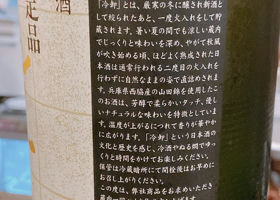 酒
定品
「冷卸」とは、厳寒の冬に醸され新酒と
して搾られたあと、一度火入れをして貯
蔵されます。暑い夏の間でも涼しい蔵内
でじっくりと味わいを深め、やがて秋風
が吹き始める頃、ほどよく熟成された日
本酒は通常行われる二度目の火入れを
行わずに自然なままの姿で直詰めされま
す。兵庫県西脇産の山田錦を使用したこ
のお酒は、芳醇で柔らかいタッチ、優し
いナチュラルな味わいを特徴としていま
す。温度が上がるにつれて香りが華やか
に広がります。「冷卸」という日本酒の
文化と歴史を感じ、冷酒やぬる燗でゆっ
くりと時間をかけてお楽しみください。
保管は冷蔵暗所にて開栓後はお早めに
お召し上がりください。
この度は、弊社商品をお求めいただき